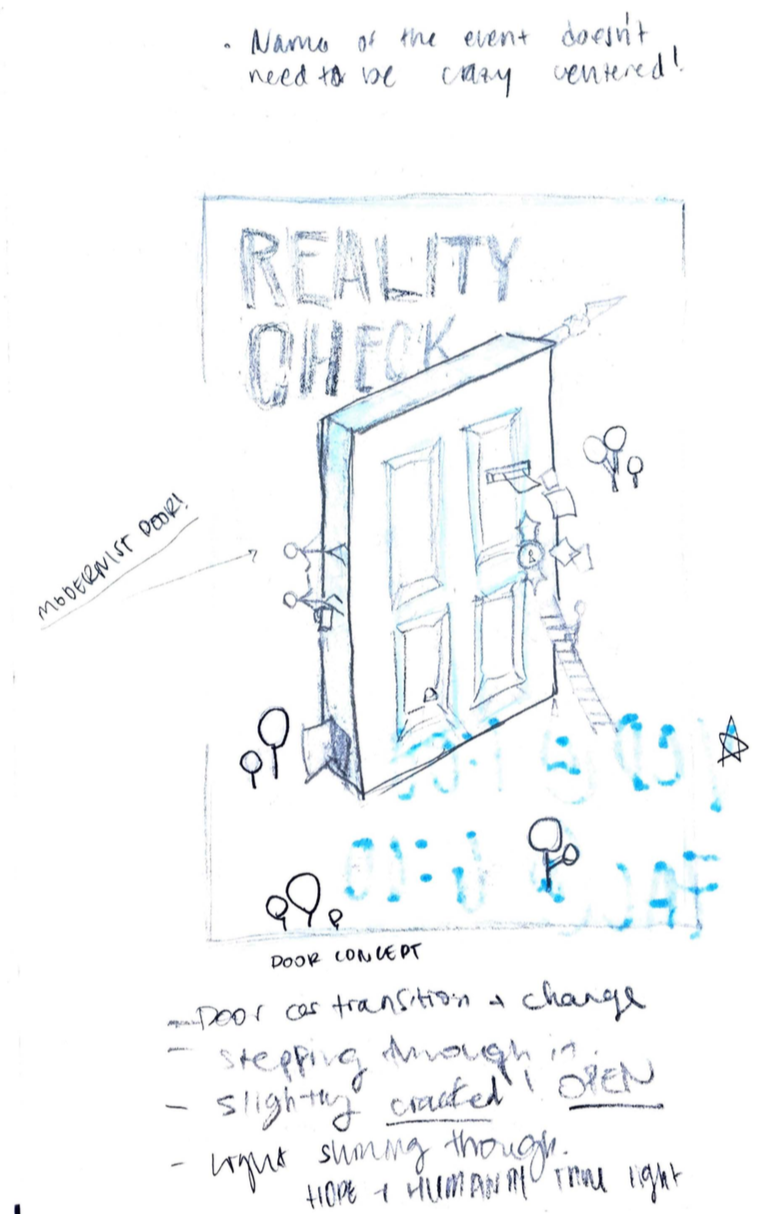 • Name of the event doesn't
need to be crazy centered!
REALITY
CHECK
MODERNIST DOOR!
DOOR CONCEPT
- Door as transition + change
- stepping through it.
- slightly cracked! OPEN
- light shining through.
HOPE + HUMANITY light